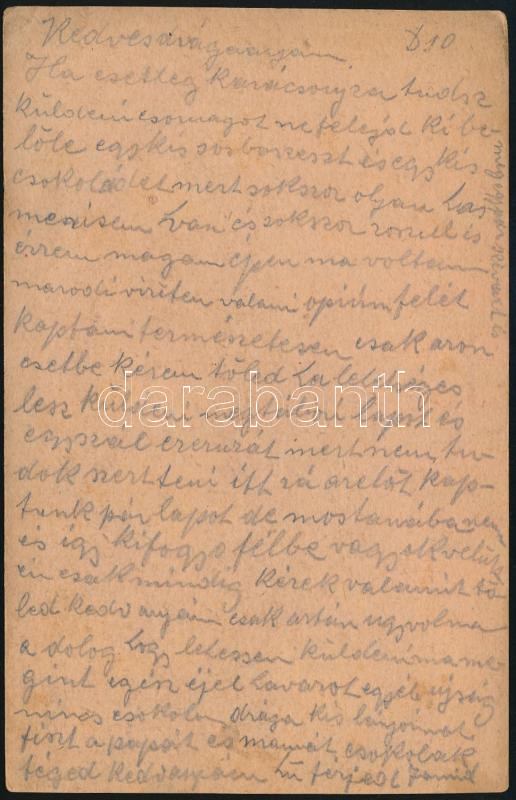 D 10
Kedves drága anyám
Ha esetleg karácsonyra tudsz
küldeni csomagot ne felejd ki be-
lőle egy kis sósborszeszt és egy kis
csokoládét mert sokszor olyan has
menésem van és sokszor rosszul is
érzem magam épen ma voltam
marodi viziten valami opiumfélét
kaptam természetesen csak azon
esetbe kérem tőled ha lehetséges
lesz küldeni lapot és
egy szál ceruzát mert nem tu-
dok szert tenni itt rá azelőt kap-
tunk pár lapot de mostanában nem
és így kifogyofélbe vagyok velük
én csak mindig kérek valamit tő-
led kedv anyám csak aztán ugy volna
a dolog hogy lehessen küldeni ma me-
gint egész éjel havazot egyéb ujság
nincs csokolu drága kis lányaimat
tiszt a papát és mamát csokolak
téged kedv anyám hü férjed
darabanth